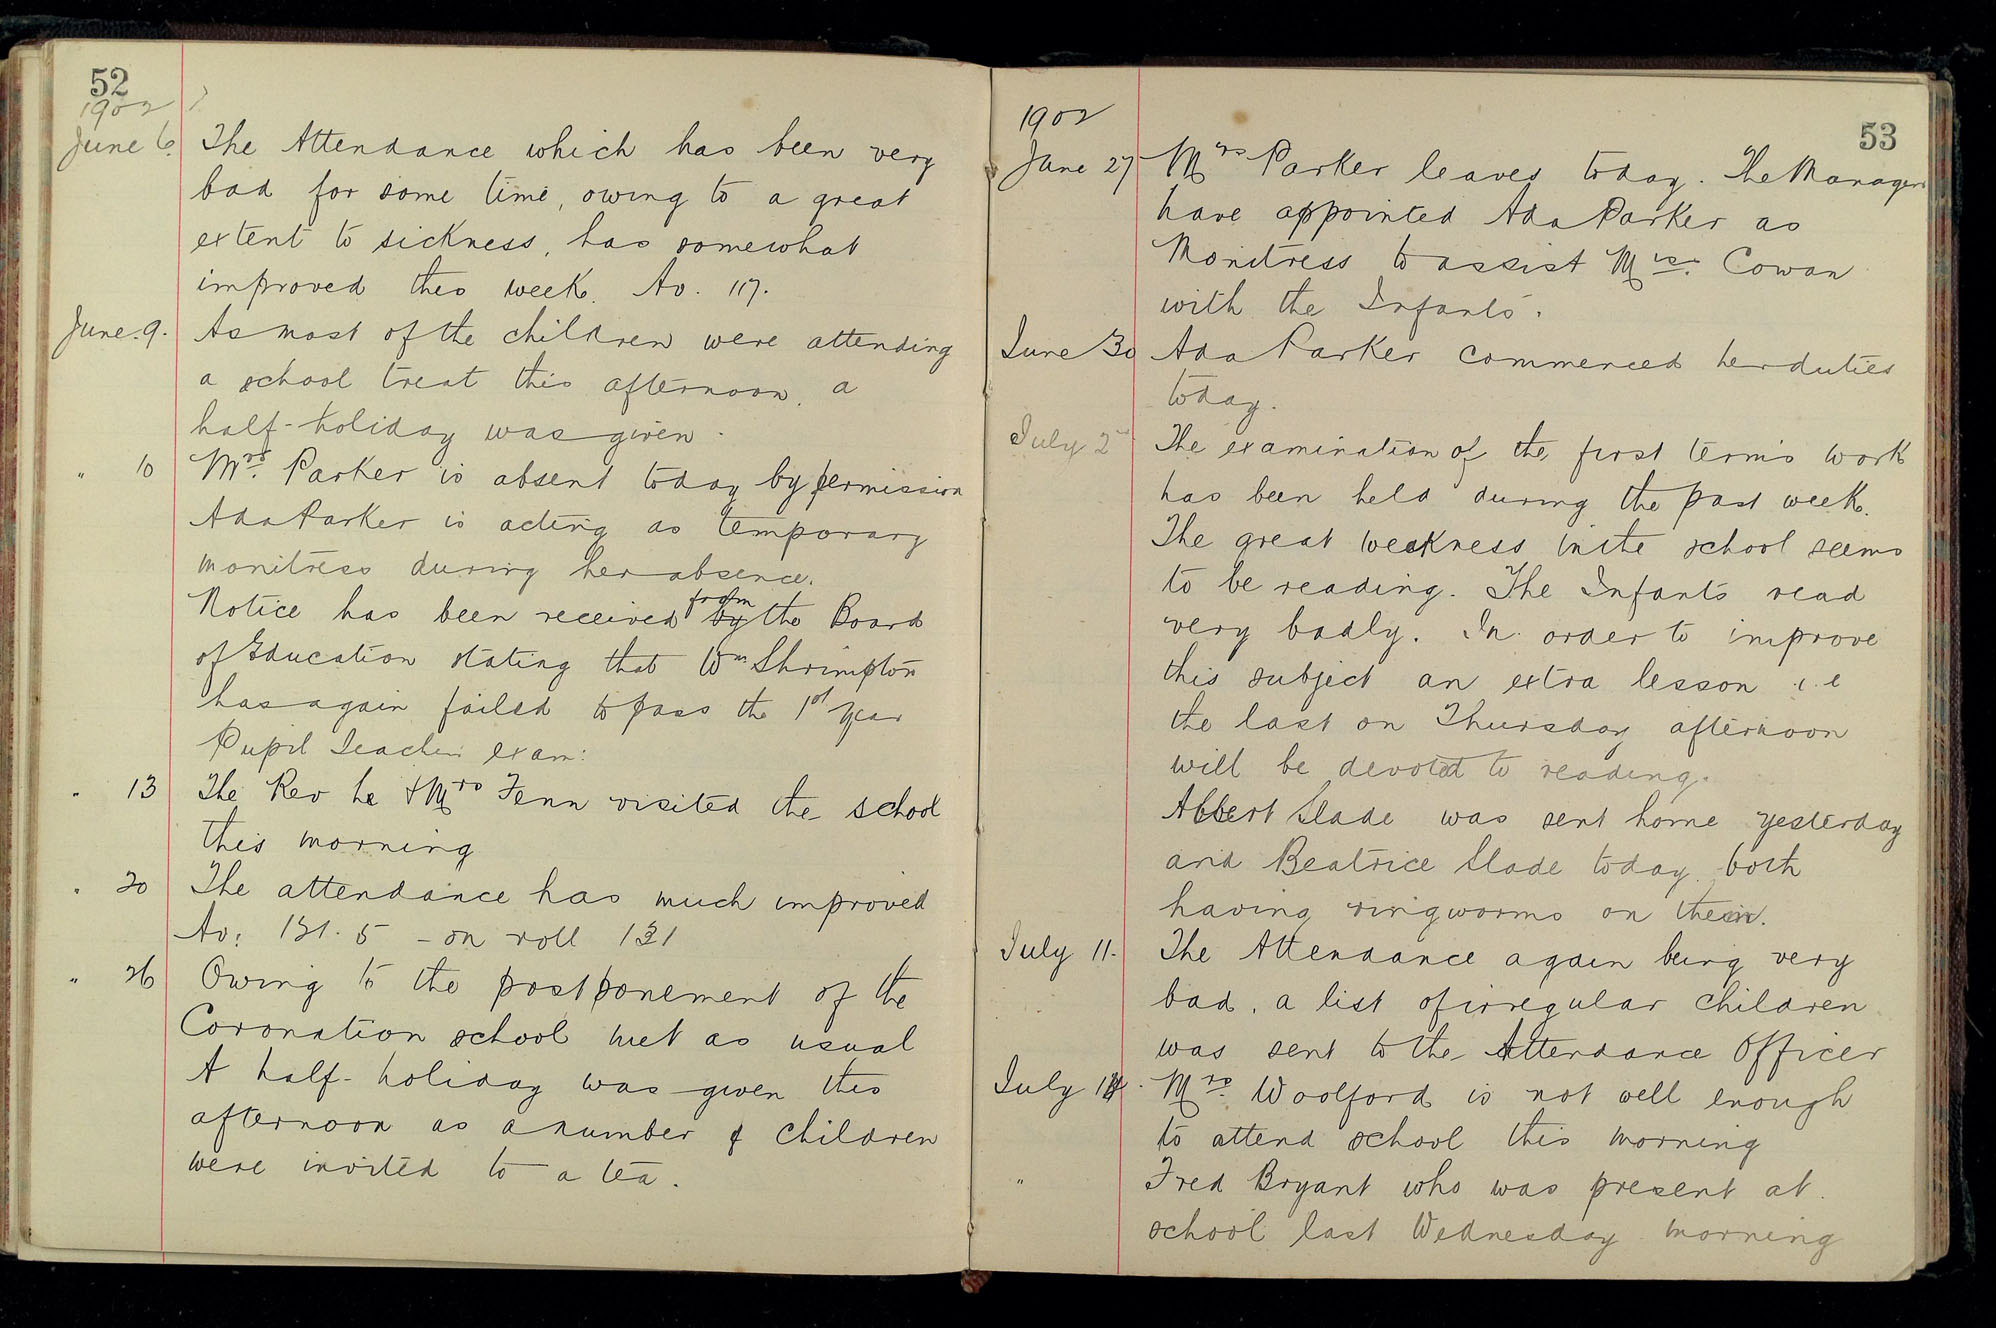 52
1902
June 6. The Attendance which has been very
bad for some time, owing to a great
extent to sickness, has somewhat
improved this week. Av. 117.
June. 9. As most of the children were attending
a school treat this afternoon, a
half-holiday was given.
" 10 Mrs. Parker is absent today by permission
Ada Parker is acting as temporary
monitress during her absence.
from
Notice has been received by the Board
of Education stating that Wm Shrimpton
has again failed to pass the 1st Year
Pupil Teacher exam:
" 13 The Rev he & Mrs Fenn visited the school
this morning
" 20 The attendance has much improved
Av: 121.5 - on roll 131
" 26 Owing to the postponement of the
Coronation school met as usual
A half-holiday was given this
afternoon as a number of children
were invited to a tea.
53
1902
June 27 Mrs Parker leaves today. The Managers
have appointed Ada Parker as
Monitress to assist Mrs. Cowan
with the Infants.
June 30 Ada Parker commenced her duties
today.
July 2 The examination of the first term's work
has been held during the past week.
The great weakness in the school seems
to be reading. The Infants read
very badly. In order to improve
this subject an extra lesson i.e
the last on Thursday afternoon
will be devoted to reading.
Albert Slade was sent home yesterday
and Beatrice Slade today, both
having ringworms on them.
July 11. The Attendance again being very
bad, a list of irregular children
was sent to the Attendance Officer
July 14. Mrs. Woolford is not well enough
to attend school this morning
" Fred Bryant who was present at
school last Wednesday morning